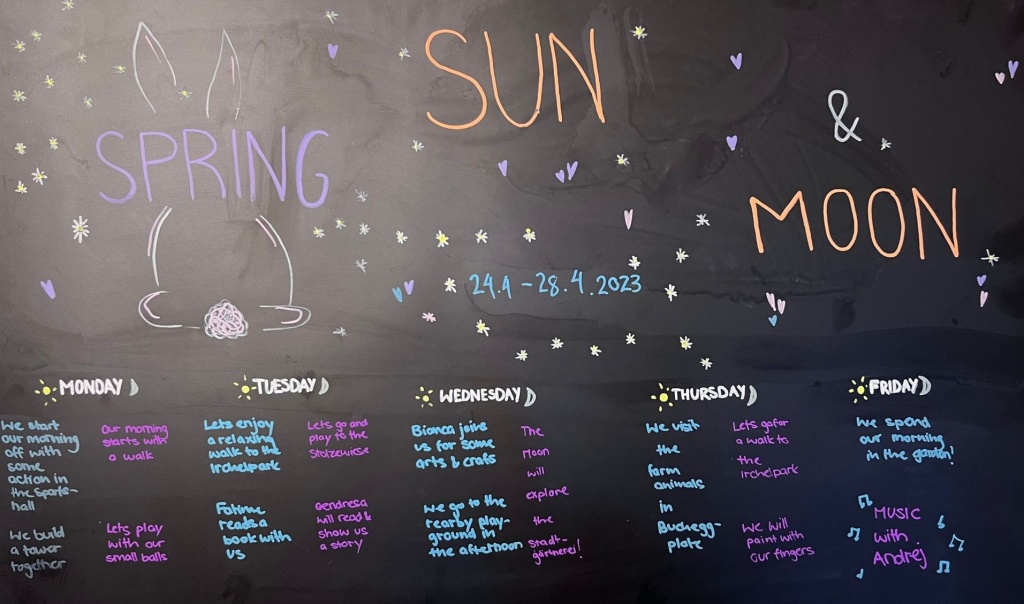 SUN
&
SPRING
MOON
24.4 - 28.4.2023
MONDAY
We start
our morning
off with
some
action in
the Sports-
hall
We build
a tower
together
Our morning
starts with
a walk
Lets play
with our
small balls
TUESDAY
Lets enjoy
a relaxing
walk to the
Irchelpark
Fatime
reads a
book with
us
Lets go and
play to the
Stolzewiese
Qendresa
will read &
show us
a story
WEDNESDAY
Bianca joins
us for some
arts & crafs
We go to the
nearby play-
ground in
the afternoon
The
Moon
will
explore
the
stadt-
gärtnerei!
THURSDAY
We visit
the
farm
animals
in
Buchegg-
platz
Lets go for
a walk to
the
Irchelpark
We will
paint with
our fingers
FRIDAY
We spend
our morning
in the garden!
MUSIC
with
Andrej